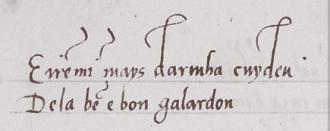 E iremi mays d armha cuydeu
De la bẽ e bon galardon